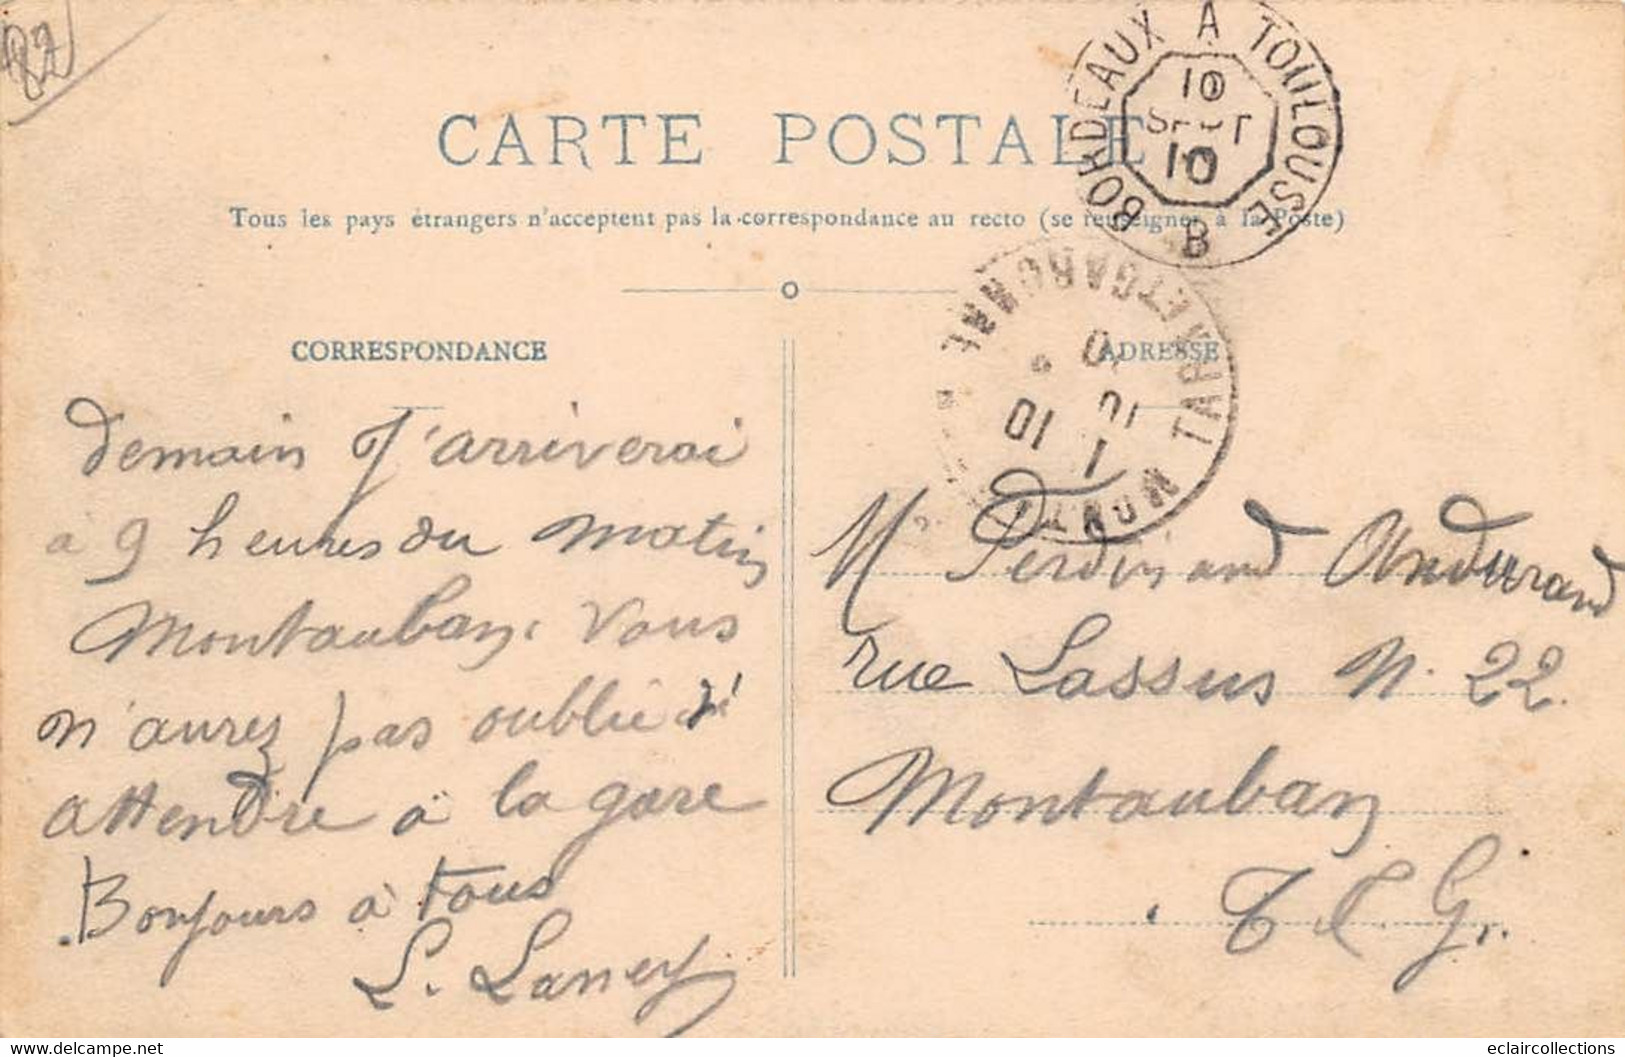 82
CARTE POSTALE
Tous les pays étrangers n'acceptent pas la correspondance au recto (se renseigner à la Poste)
BORDEAUX A TOULOUSE
10
SEPT
10
B
TARN ET GARONNE
10
10
CORRESPONDANCE
ADRESSE
demain J'arriverai
à 9 heures du matin
Montauban. Vous
n'aurez pas oublié d'
attendre à la gare
Bonjours à tous
L.
M Ferdinand Andurand
rue Lassus N. 22.
Montauban
T E G.
delcampe.net
eclaircollections